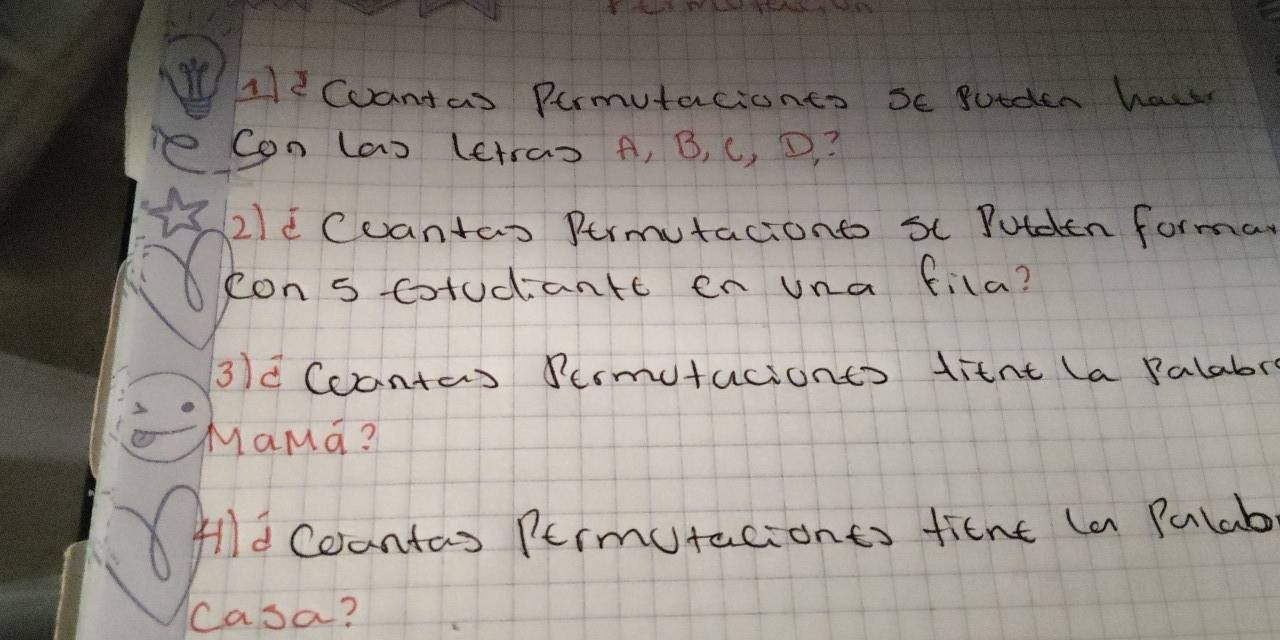 Permutación
1) ¿Cuantas Permutaciones se Pueden hacer
Con las letras A, B, C, D,?
2) ¿Cuantas Permutaciones se Pueden formar
con 5 estudiante en una fila?
3) ¿Cuantas Permutaciones tiene la Palabra
Mamá?
4) ¿Cuantas Permutaciones tiene la Palabr
Casa?